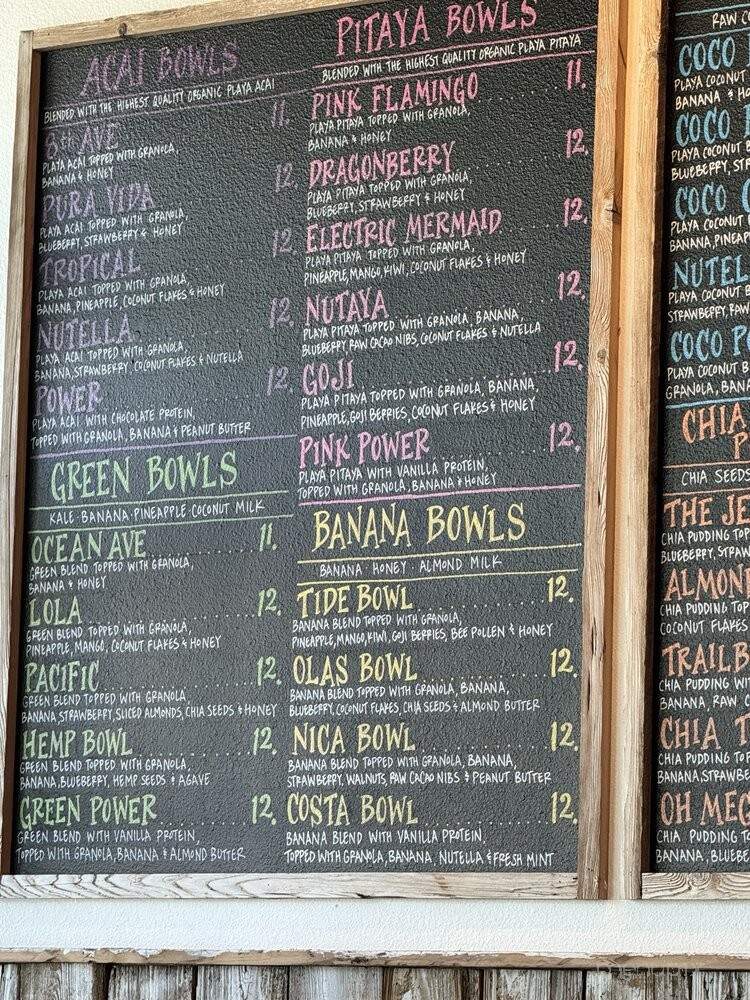 ACAI BOWLS
BLENDED WITH THE HIGHEST QUALITY ORGANIC PLAYA ACAI
8th AVE 11.
PLAYA ACAI TOPPED WITH GRANOLA,
BANANA & HONEY
PURA VIDA 12.
PLAYA ACAI TOPPED WITH GRANOLA,
BLUEBERRY, STRAWBERRY & HONEY
TROPICAL 12.
PLAYA ACAI TOPPED WITH GRANOLA,
BANANA, PINEAPPLE, COCONUT FLAKES & HONEY
NUTELLA 12.
PLAYA ACAI TOPPED WITH GRANOLA,
BANANA, STRAWBERRY, COCONUT FLAKES & NUTELLA
POWER 12.
PLAYA ACAI WITH CHOCOLATE PROTEIN,
TOPPED WITH GRANOLA, BANANA & PEANUT BUTTER
GREEN BOWLS
KALE · BANANA · PINEAPPLE · COCONUT MILK
OCEAN AVE 11.
GREEN BLEND TOPPED WITH GRANOLA,
BANANA & HONEY
LOLA 12.
GREEN BLEND TOPPED WITH GRANOLA,
PINEAPPLE, MANGO, COCONUT FLAKES & HONEY
PACIFIC 12.
GREEN BLEND TOPPED WITH GRANOLA,
BANANA, STRAWBERRY, SLICED ALMONDS, CHIA SEEDS & HONEY
HEMP BOWL 12.
GREEN BLEND TOPPED WITH GRANOLA,
BANANA, BLUEBERRY, HEMP SEEDS & AGAVE
GREEN POWER 12.
GREEN BLEND WITH VANILLA PROTEIN,
TOPPED WITH GRANOLA, BANANA & ALMOND BUTTER
PITAYA BOWLS
BLENDED WITH THE HIGHEST QUALITY ORGANIC PLAYA PITAYA
PINK FLAMINGO 11.
PLAYA PITAYA TOPPED WITH GRANOLA,
BANANA & HONEY
DRAGONBERRY 12.
PLAYA PITAYA TOPPED WITH GRANOLA,
BLUEBERRY, STRAWBERRY & HONEY
ELECTRIC MERMAID 12.
PLAYA PITAYA TOPPED WITH GRANOLA,
PINEAPPLE, MANGO, KIWI, COCONUT FLAKES & HONEY
NUTAYA 12.
PLAYA PITAYA TOPPED WITH GRANOLA, BANANA,
BLUEBERRY, RAW CACAO NIBS, COCONUT FLAKES & NUTELLA
GOJI 12.
PLAYA PITAYA TOPPED WITH GRANOLA, BANANA,
PINEAPPLE, GOJI BERRIES, COCONUT FLAKES & HONEY
PINK POWER 12.
PLAYA PITAYA WITH VANILLA PROTEIN,
TOPPED WITH GRANOLA, BANANA & HONEY
BANANA BOWLS
BANANA · HONEY · ALMOND MILK
TIDE BOWL 12.
BANANA BLEND TOPPED WITH GRANOLA,
PINEAPPLE, MANGO, KIWI, GOJI BERRIES, BEE POLLEN & HONEY
OLAS BOWL 12.
BANANA BLEND TOPPED WITH GRANOLA, BANANA,
BLUEBERRY, COCONUT FLAKES, CHIA SEEDS & ALMOND BUTTER
NICA BOWL 12.
BANANA BLEND TOPPED WITH GRANOLA, BANANA,
STRAWBERRY, WALNUTS, RAW CACAO NIBS & PEANUT BUTTER
COSTA BOWL 12.
BANANA BLEND WITH VANILLA PROTEIN,
TOPPED WITH GRANOLA, BANANA, NUTELLA & FRESH MINT
RAW CO
COCO
PLAYA COCONUT
BANANA & HON
COCO
PLAYA COCONUT B
BLUEBERRY, ST
COCO
PLAYA COCONUT
BANANA, PINEAP
NUTEL
PLAYA COCONUT B
STRAWBERRY, RAW
COCO P
PLAYA COCONUT B
GRANOLA, BANA
CHIA
P
CHIA SEEDS
THE JE
CHIA PUDDING TOP
BLUEBERRY, STRAW
ALMON
CHIA PUDDING TOP
COCONUT FLAKES
TRAILB
CHIA PUDDING WIT
BANANA, RAW C
CHIA T
CHIA PUDDING TOP
BANANA, STRAWBE
OH MEG
CHIA PUDDING TO
BANANA, BLUEBE